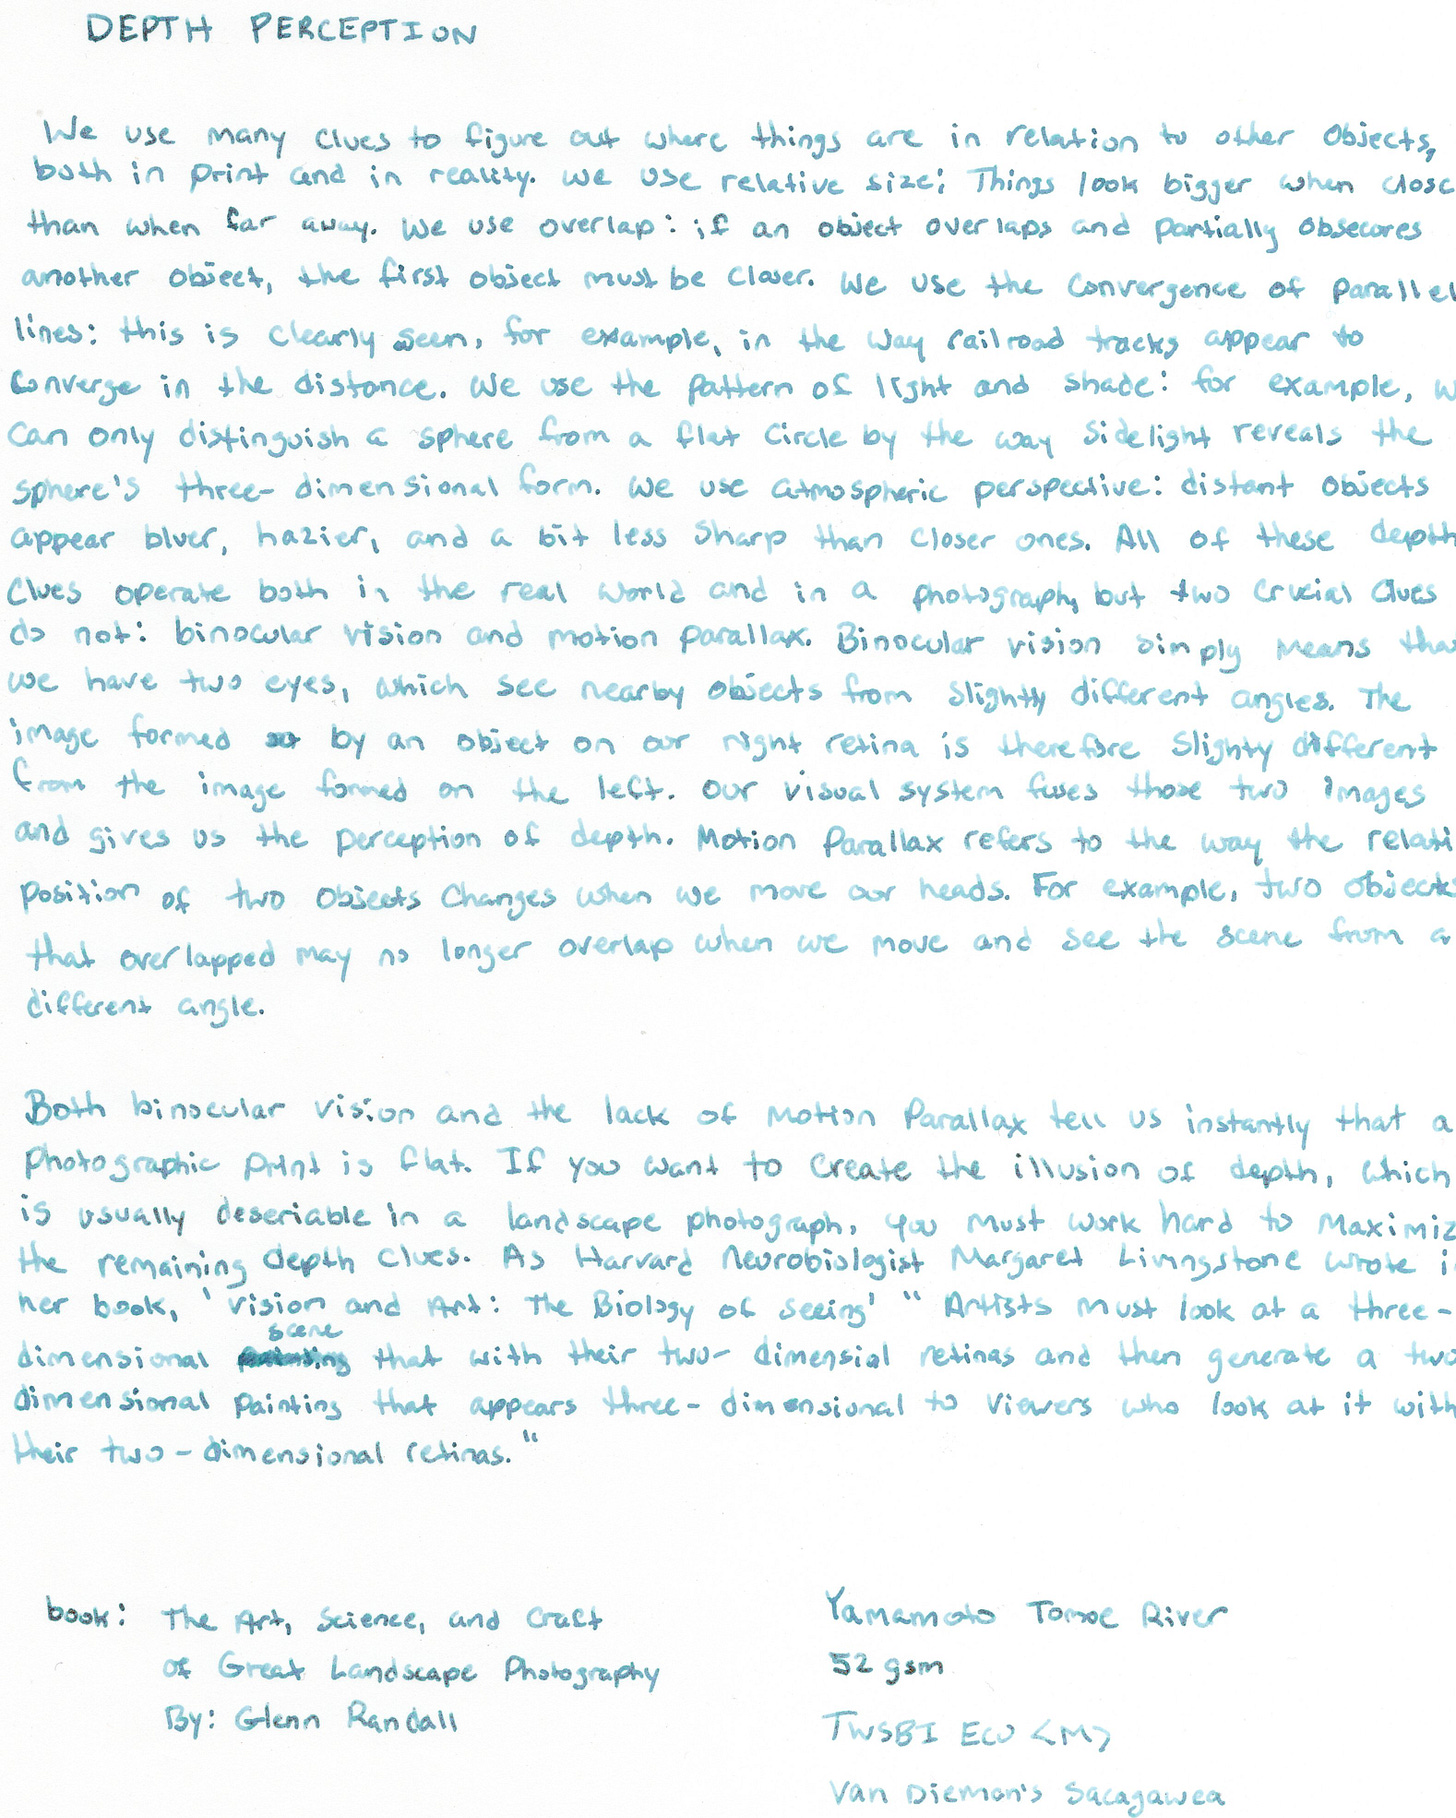 DEPTH PERCEPTION
We use many clues to figure out where things are in relation to other objects,
both in print and in reality. We use relative size; Things look bigger when close
than when far away. We use overlap: if an object overlaps and partially obsecores
another object, the first object must be closer. We use the convergence of parallel
lines: this is clearly seen, for example, in the way railroad tracks appear to
converge in the distance. We use the pattern of light and shade: for example, w
can only distinguish a sphere from a flat circle by the way sidelight reveals the
sphere's three-dimensional form. We use atmospheric perspective: distant objects
appear bluer, hazier, and a bit less sharp than closer ones. All of these depth
clues operate both in the real world and in a photograph, but two crucial clues
do not: binocular vision and motion parallax. Binocular vision simply means tha
we have two eyes, which see nearby objects from slightly different angles. The
image formed by an object on our right retina is therefore slighty different
from the image formed on the left. Our visual system fuses those two images
and gives us the perception of depth. Motion Parallax refers to the way the relati
position of two objects changes when we move our heads. For example, two objects
that overlapped may no longer overlap when we move and see the scene from a
different angle.
Both binocular vision and the lack of motion parallax tell us instantly that a
photographic print is flat. If you want to create the illusion of depth, which
is usually deseriable in a landscape photograph, you must work hard to maximiz
the remaining depth clues. As Harvard Neurobiologist Margaret Livingstone wrote i
her book, 'vision and Art: The Biology of seeing' "Artists must look at a three-
scene
dimensional that with their two-dimensial retinas and then generate a two
dimensional painting that appears three-dimensional to viewers who look at it with
their two-dimensional retinas."
book: The Art, Science, and Craft
of Great Landscape Photography
By: Glenn Randall
Yamamoto Tomoe River
52 gsm
TWSBI Eco <M>
Van Dieman's Sacagawea